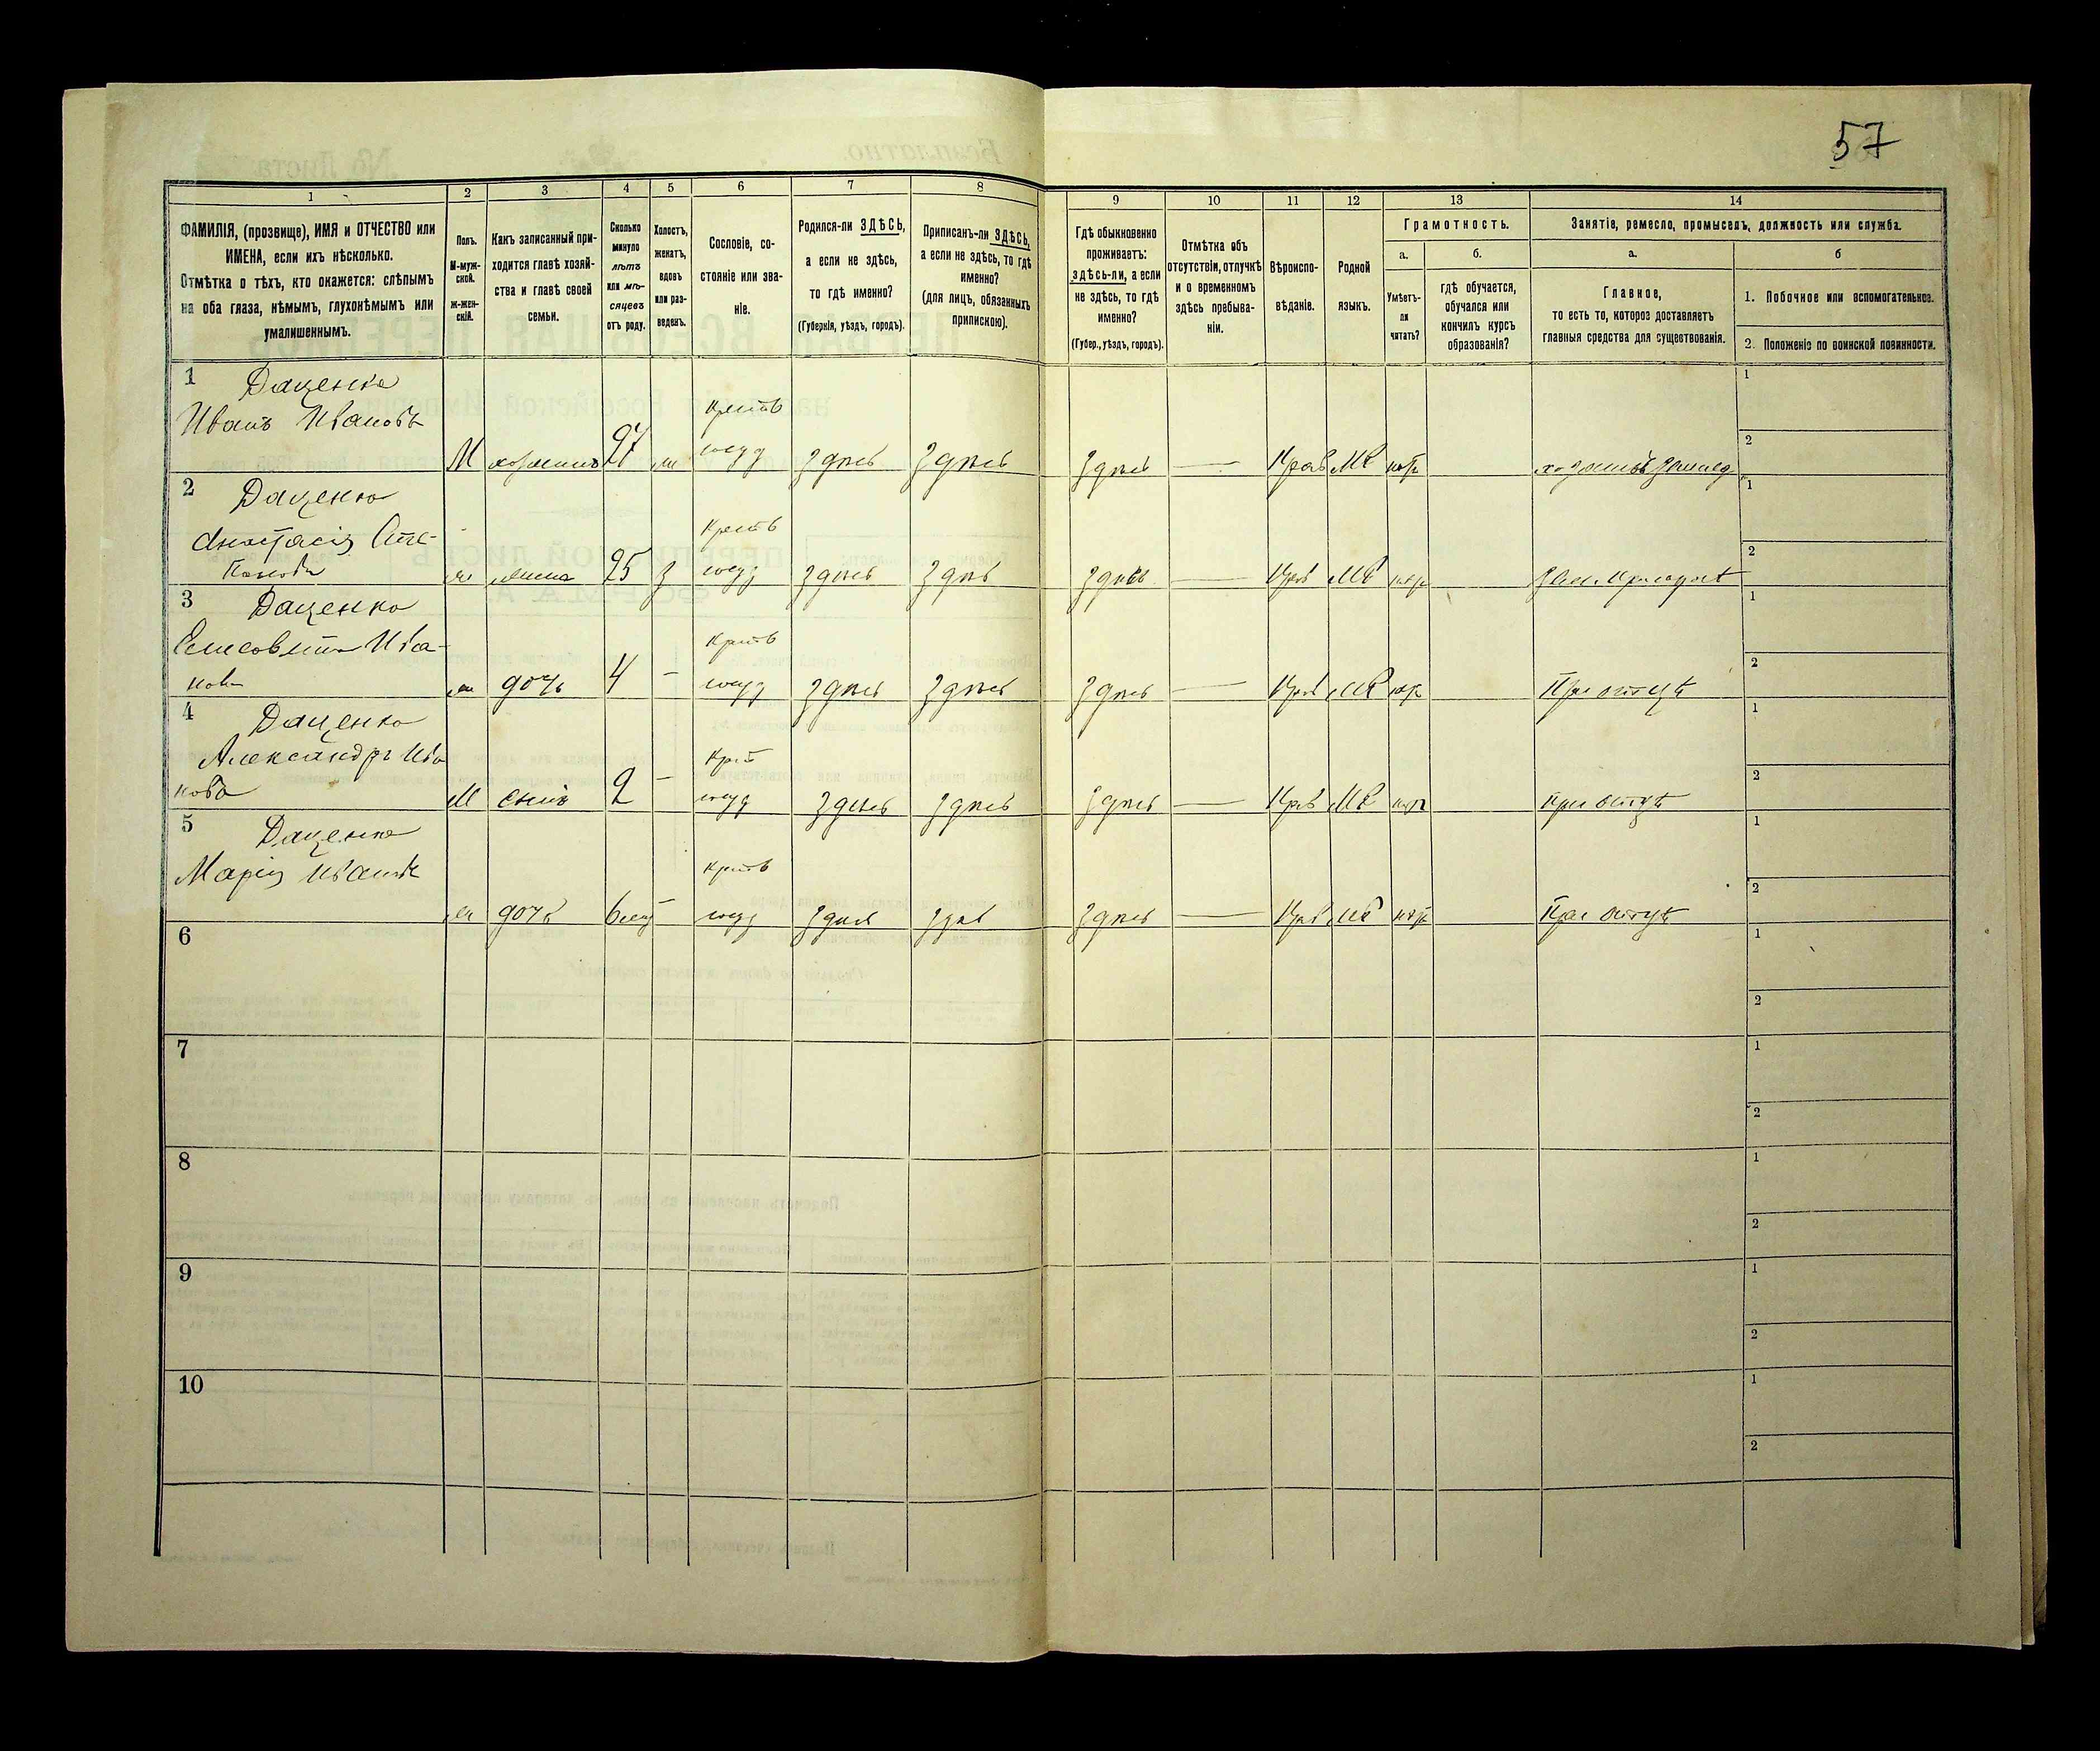 57
1
2
3
4
5
6
7
8
9
10
11
12
13
14
ФАМИЛІЯ, (прозвище), ИМЯ и ОТЧЕСТВО или
ИМЕНА, если ихъ нѣсколько.
Отмѣтка о тѣхъ, кто окажется: слѣпымъ
на оба глаза, нѣмымъ, глухонѣмымъ или
умалишеннымъ.
Полъ.
М-муж-
ской.
Ж-жен-
скій.
Какъ записанный при-
ходится главѣ хозяй-
ства и главѣ своей
семьи.
Сколько
минуло
лѣтъ
или мѣ-
сяцевъ
отъ роду.
Холостъ,
женатъ,
вдовъ
или раз-
веденъ.
Сословіе, со-
стояніе или зва-
ніе.
Родился-ли ЗДѢСЬ,
а если не здѣсь,
то гдѣ именно?
(Губернія, уѣздъ, городъ).
Приписанъ-ли ЗДѢСЬ,
а если не здѣсь, то гдѣ
именно?
(для лицъ, обязанныхъ
припискою).
Гдѣ обыкновенно
проживаетъ:
здѣсь-ли, а если
не здѣсь, то гдѣ
именно?
(Губер., уѣздъ, городъ).
Отмѣтка объ
отсутствіи, отлучкѣ
и о временномъ
здѣсь пребыва-
ніи.
Вѣроиспо-
вѣданіе.
Родной
языкъ.
Грамотность.
а.
Умѣетъ-
ли
читать?
б.
гдѣ обучается,
обучался или
кончилъ курсъ
образованія?
Занятіе, ремесло, промыселъ, должность или служба.
а.
Главное,
то есть то, которое доставляетъ
главныя средства для существованія.
б
1. Побочное или вспомогательное.
2. Положеніе по воинской повинности.
1 Даценко
Иванъ Ивановъ
М хозяинъ 27 ж
здѣсь здѣсь здѣсь — Прав МР нѣтъ
1
2
2 Даценко
Анастасія Сте-
панова
ж жена 25 з
здѣсь здѣсь здѣсь — Прав МР нѣтъ
1
2
3 Даценко
Елисовета Ива-
нова
ж дочь 4 —
здѣсь здѣсь здѣсь — Прав МР нѣтъ При отцѣ
1
2
4 Даценко
Александръ Ива
новъ
М сынъ 2 —
здѣсь здѣсь здѣсь — Прав МР нѣтъ При отцѣ
1
2
5 Даценко
Марія Иванов
ж дочь 6 мѣс —
здѣсь здѣсь здѣсь — Прав МР нѣтъ При отцѣ
1
2
6
1
2
7
1
2
8
1
2
9
1
2
10
1
2